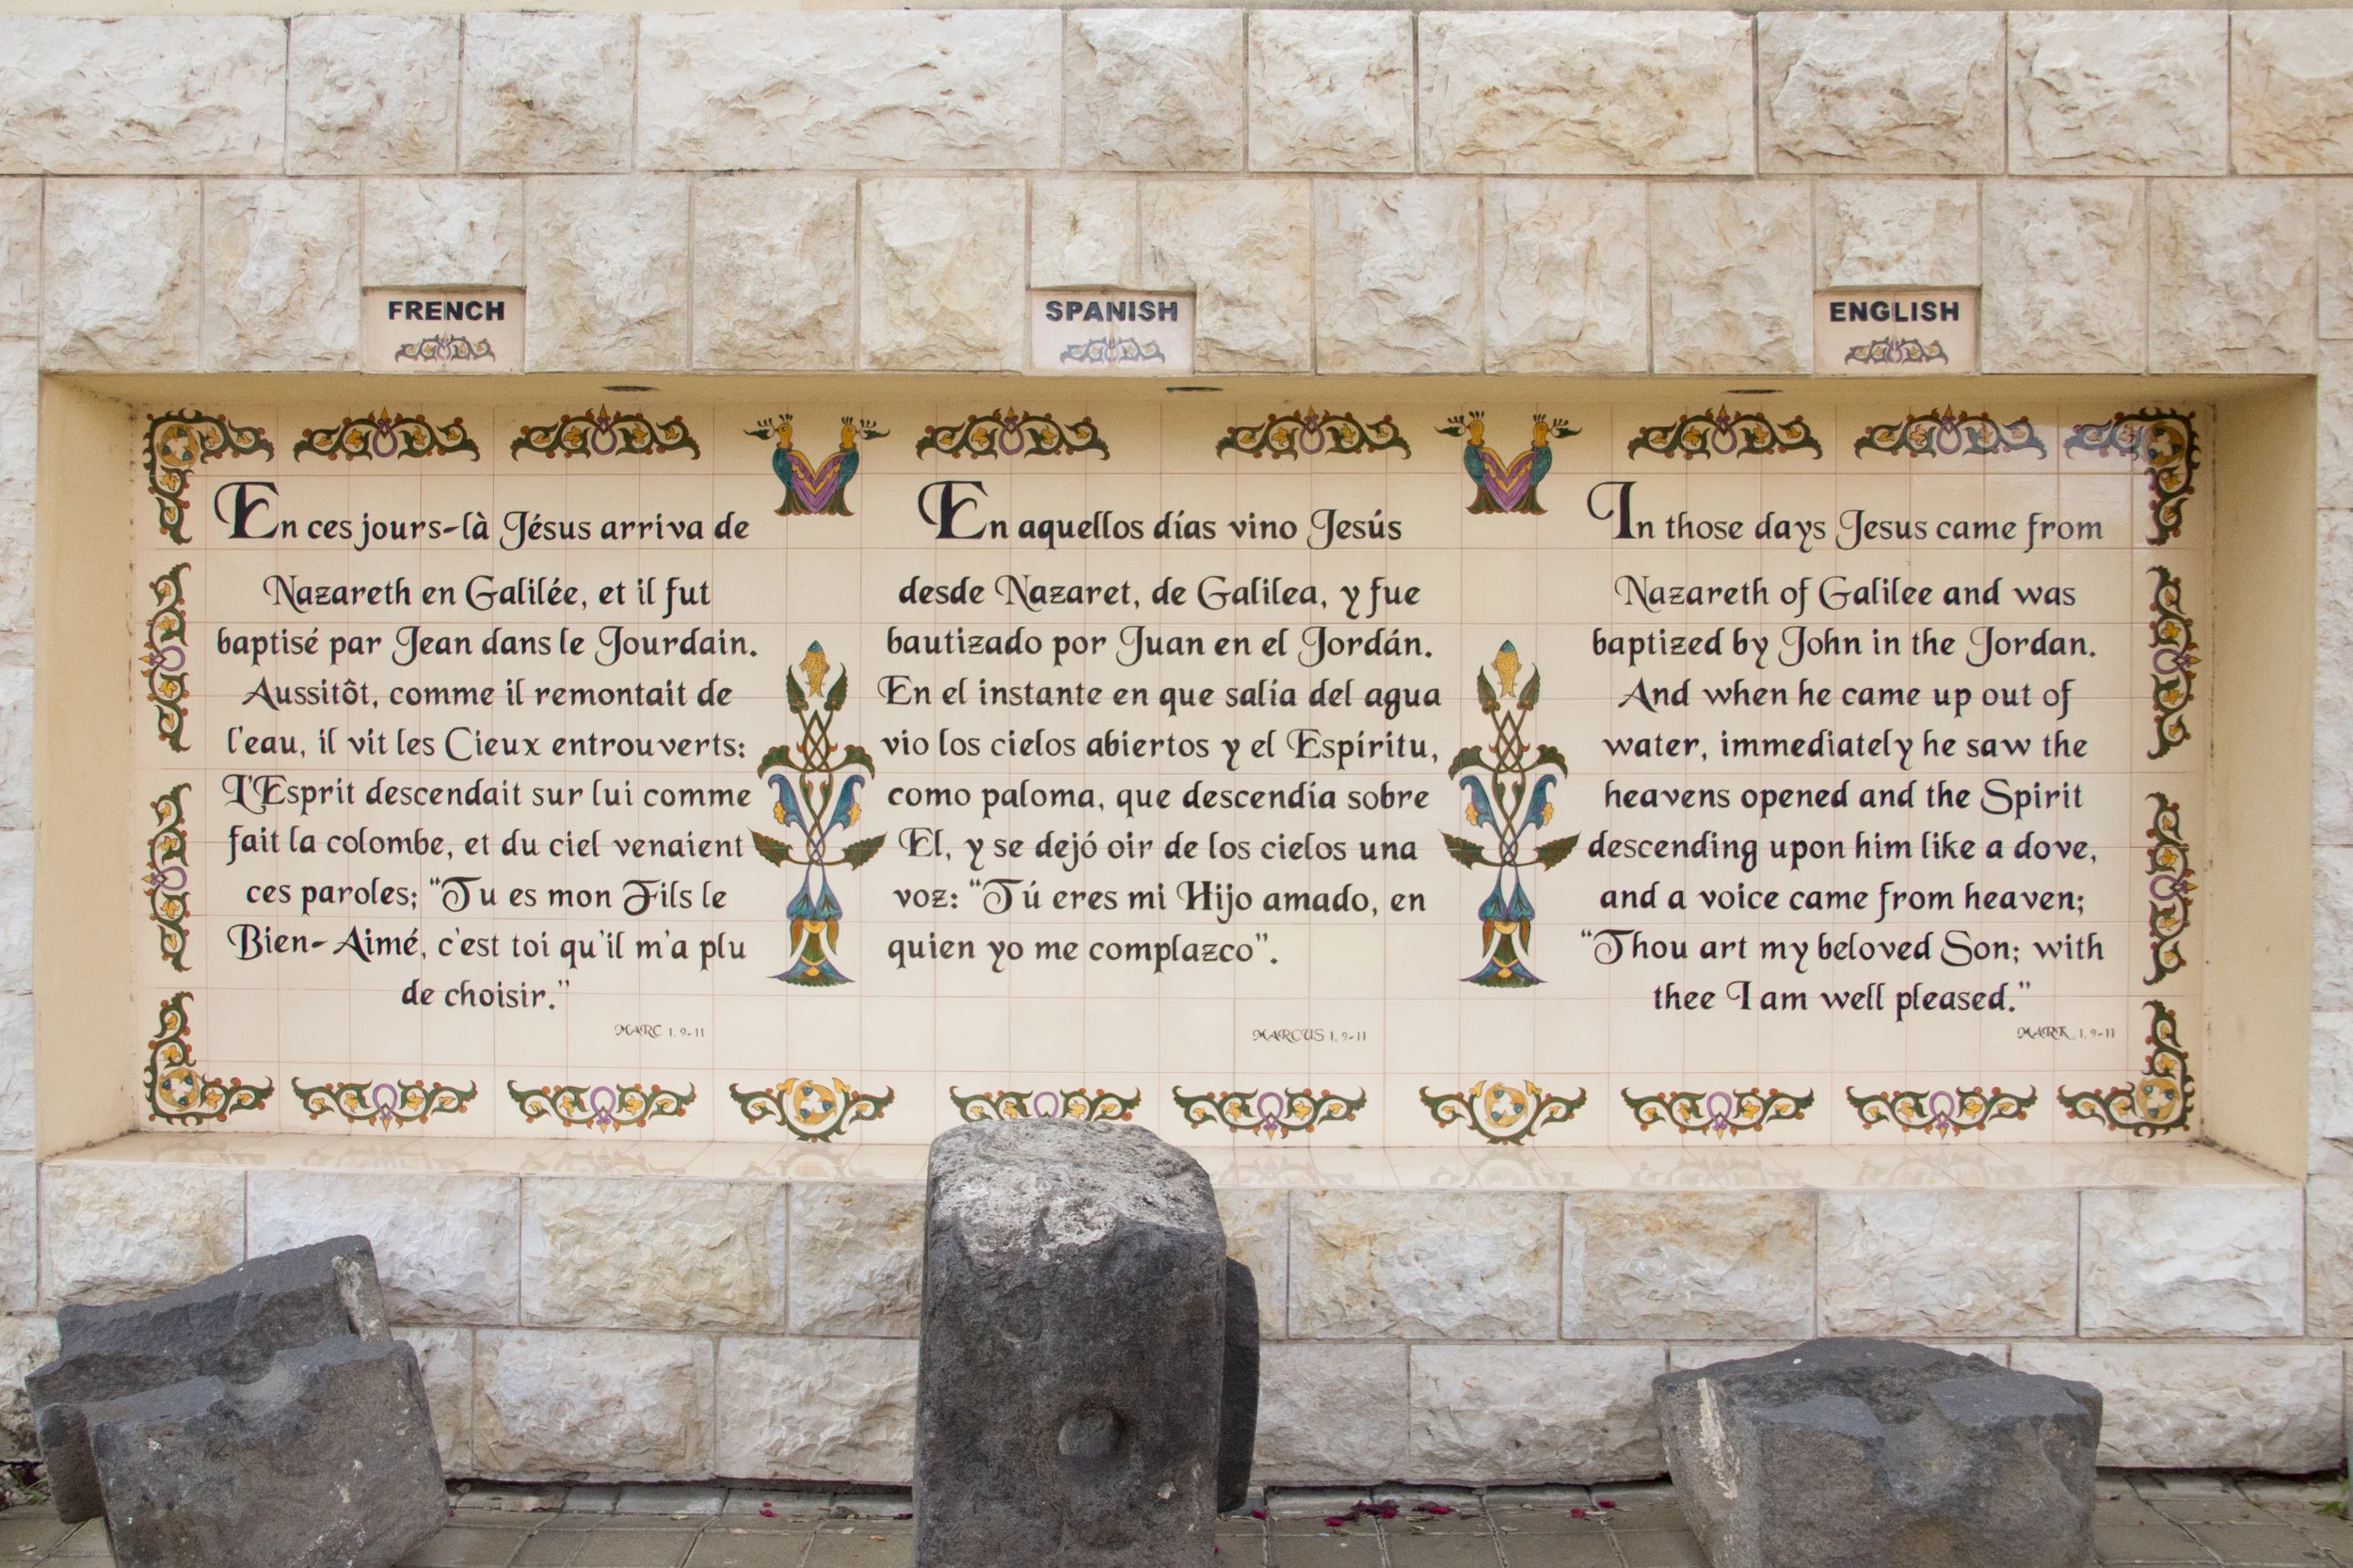 FRENCH
En ces jours-là Jésus arriva de
Nazareth en Galilée, et il fut
baptisé par Jean dans le Jourdain.
Aussitôt, comme il remontait de
l'eau, il vit les Cieux entrouverts:
L'Esprit descendait sur lui comme
fait la colombe, et du ciel venaient
ces paroles; "Tu es mon Fils le
Bien-Aimé, c'est toi qu'il m'a plu
de choisir."
MARC 1, 9-11
SPANISH
En aquellos días vino Jesús
desde Nazaret, de Galilea, y fue
bautizado por Juan en el Jordán.
En el instante en que salía del agua
vio los cielos abiertos y el Espíritu,
como paloma, que descendía sobre
El, y se dejó oir de los cielos una
voz: "Tú eres mi Hijo amado, en
quien yo me complazco".
MARCUS 1, 9-11
ENGLISH
In those days Jesus came from
Nazareth of Galilee and was
baptized by John in the Jordan.
And when he came up out of
water, immediately he saw the
heavens opened and the Spirit
descending upon him like a dove,
and a voice came from heaven;
"Thou art my beloved Son; with
thee I am well pleased."
MARK, 1, 9-11